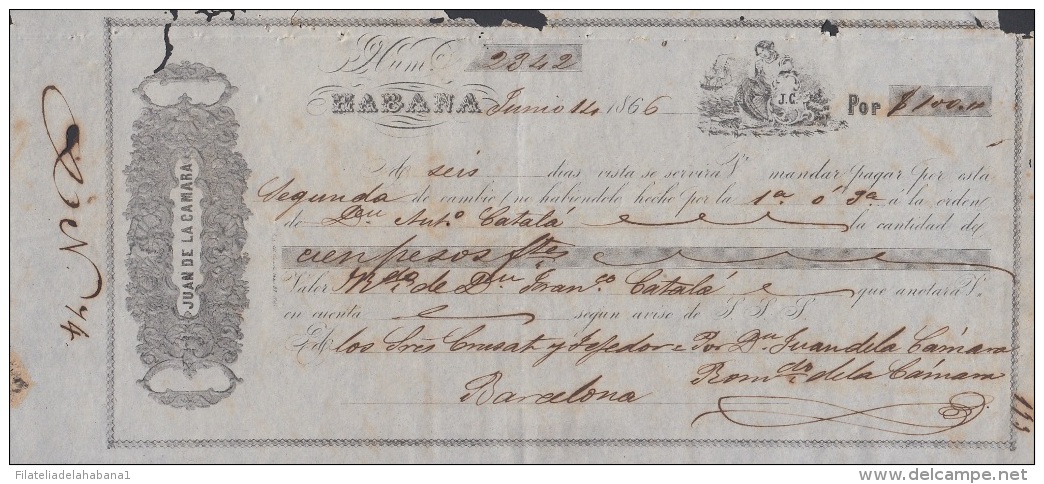 Núm. 2342
J.C.
HABANA Junio 14 1866 Por $ 100..
A seis dias vista se servirá V. mandar pagar por esta
Segunda de cambio (no habiendolo hecho por la 1a ó 3a á la orden
de Dn Anto. Catalá la cantidad de
cien pesos ftes
Valor de Dn Franco Catalá que anotará V.
en cuenta segun aviso de S. S. S.
A los Sres Crusat y Tejedor = Por Dn Juan de la Cámara
Barcelona Romdo. de la Cámara
JUAN DE LA CAMARA
No 74
113
Filateliadelahabana1
delcampe.net